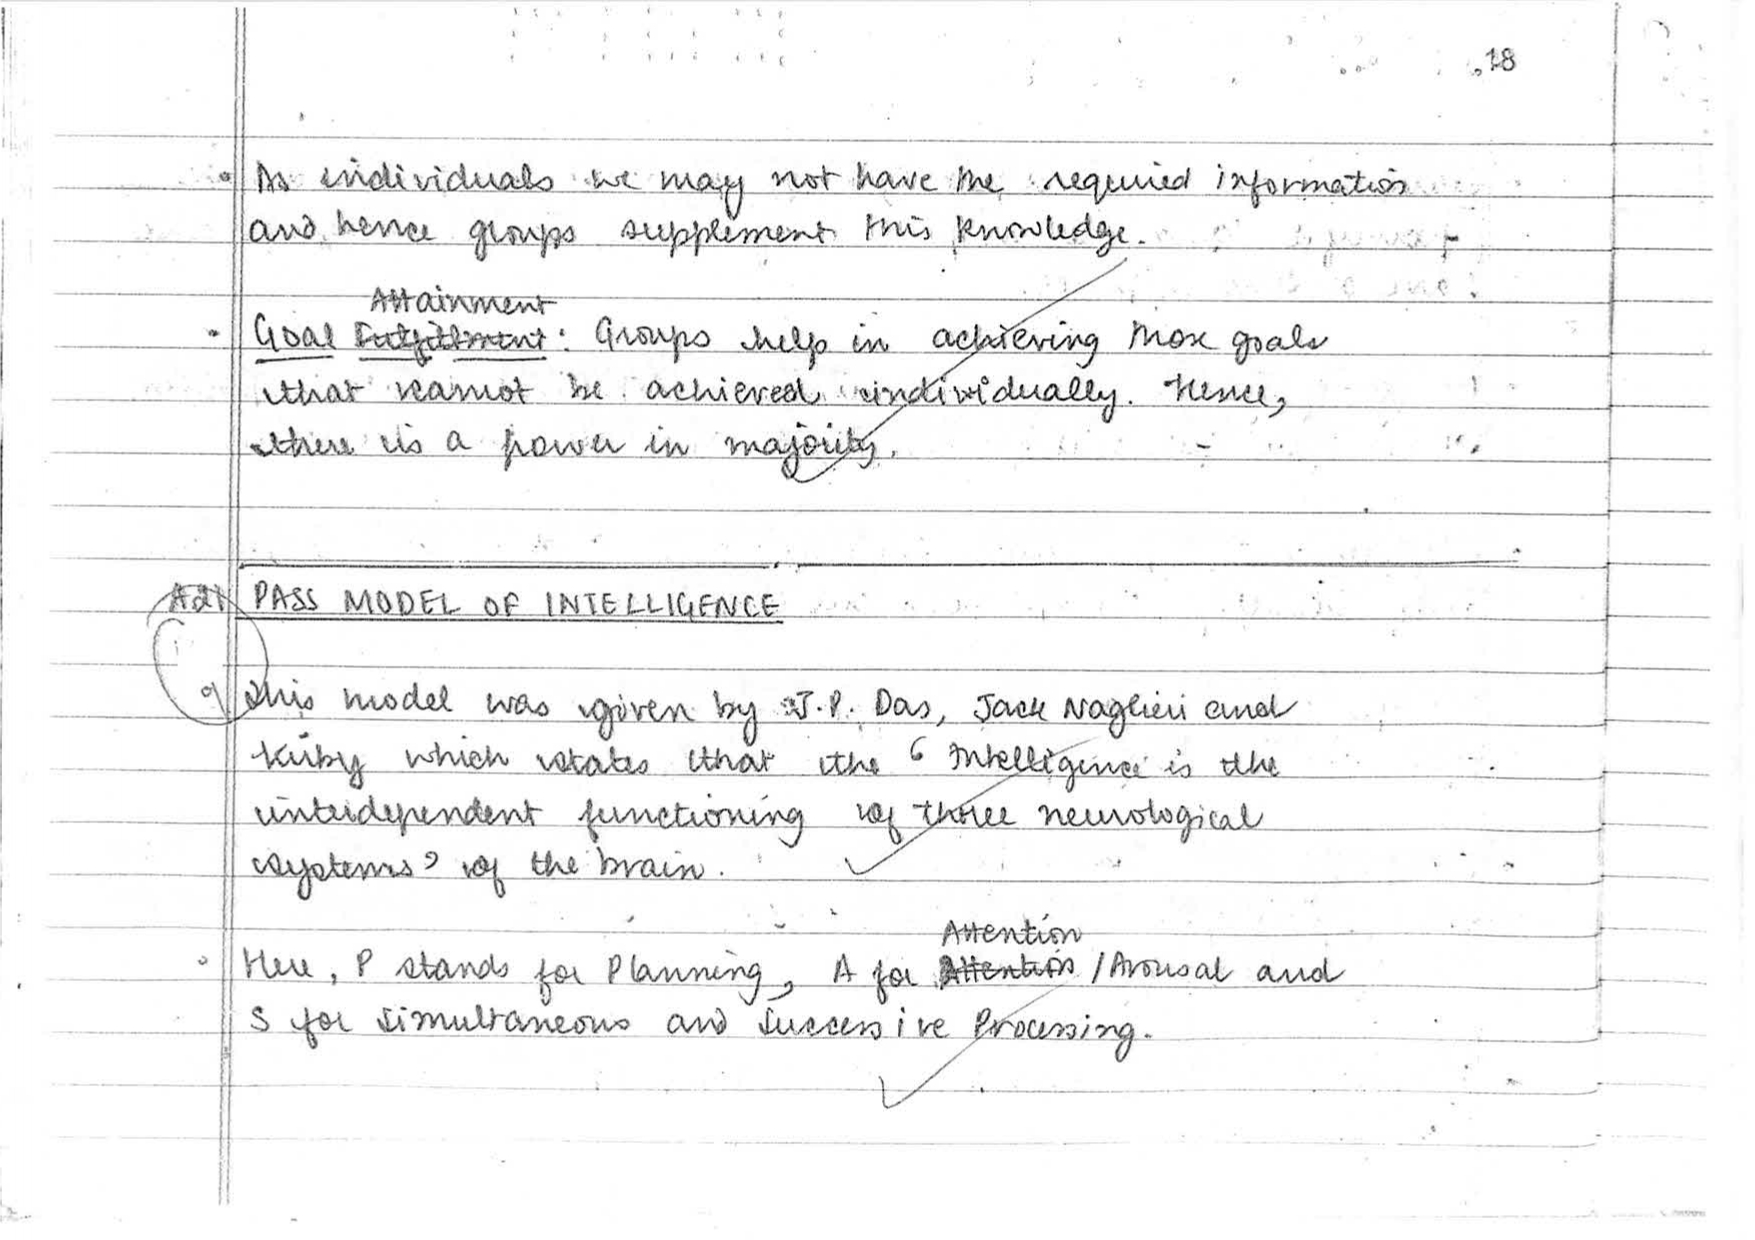 18
• As individuals we may not have the required information
and hence groups supplement this knowledge.
Attainment
• Goal Fulfillment : Groups help in achieving those goals
that cannot be achieved individually. Hence,
there is a power in majority.
A21 PASS MODEL OF INTELLIGENCE
This model was given by J.P. Das, Jack Naglieri and
Kirby which states that the ‘Intelligence is the
interdependent functioning of three neurological
systems’ of the brain.
Attention
• Here, P stands for Planning, A for Attention /Arousal and
S for Simultaneous and Successive Processing.